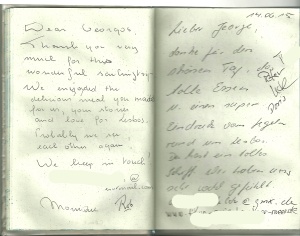 Dear Georgos,
Thank you very
much for this
wonderful sailingtrip
We enjoyed the
delicious meal you made
for us, your stories
and love for Lesbos.
Probably we see
each other again
We keep in touch!
@
Monique Rob
14.09.15
Lieber George,
danke für den
schönen Tag, das
tolle Essen
u. einen super
Eindruck vom Segeln
rund um Lesbos.
Du hast ein tolles
Schiff. Wir haben uns
sehr wohl gefühlt
@gmx.de